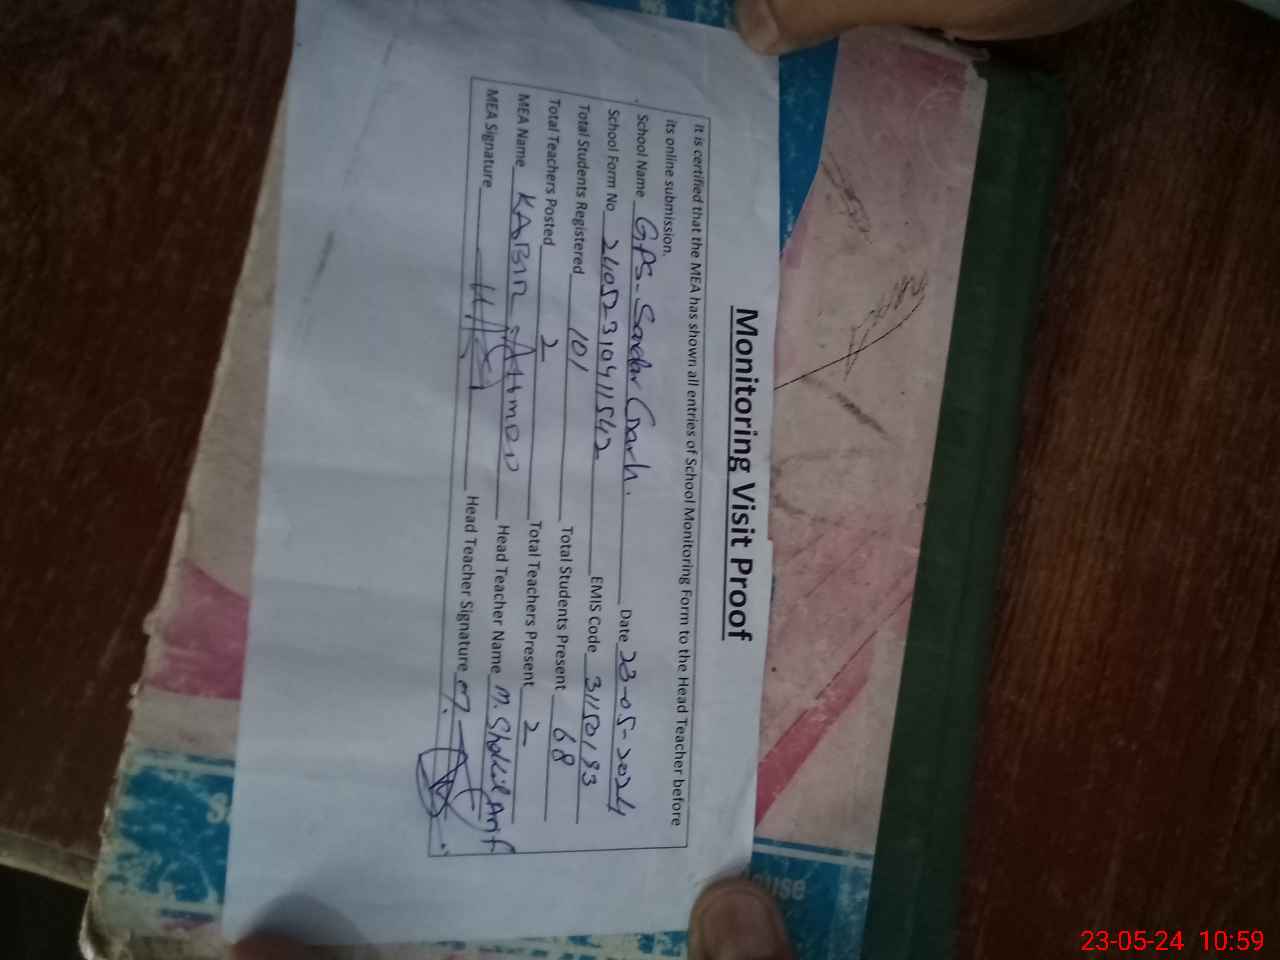 Monitoring Visit Proof
It is certified that the MEA has shown all entries of School Monitoring Form to the Head Teacher before
its online submission.
School Name GPS-Sardar Garh. Date 23-05-2024
School Form No 24052310411542 EMIS Code 31150193
Total Students Registered 101 Total Students Present 68
Total Teachers Posted 2 Total Teachers Present 2
MEA Name KABIR AHMED Head Teacher Name M. Shakil Arif
MEA Signature Head Teacher Signature
23-05-24 10:59